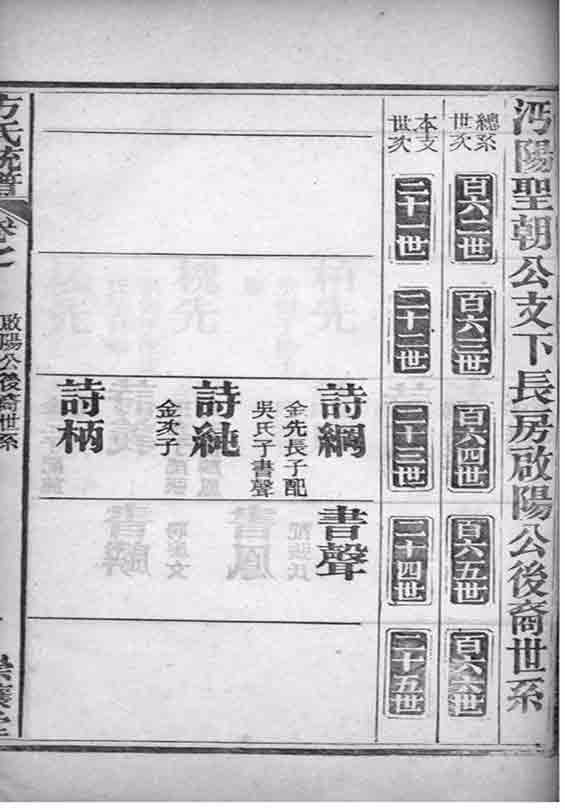 沔陽聖朝公支下長房啟陽公後裔世系
總系世次
百六二世
百六三世
百六四世
百六五世
百六六世
本支世次
二十一世
二十二世
二十三世
二十四世
二十五世
詩綱
金先長子配
吳氏子書聲
書聲
詩純
金次子
詩柄
方氏統譜
啟陽公後裔世系